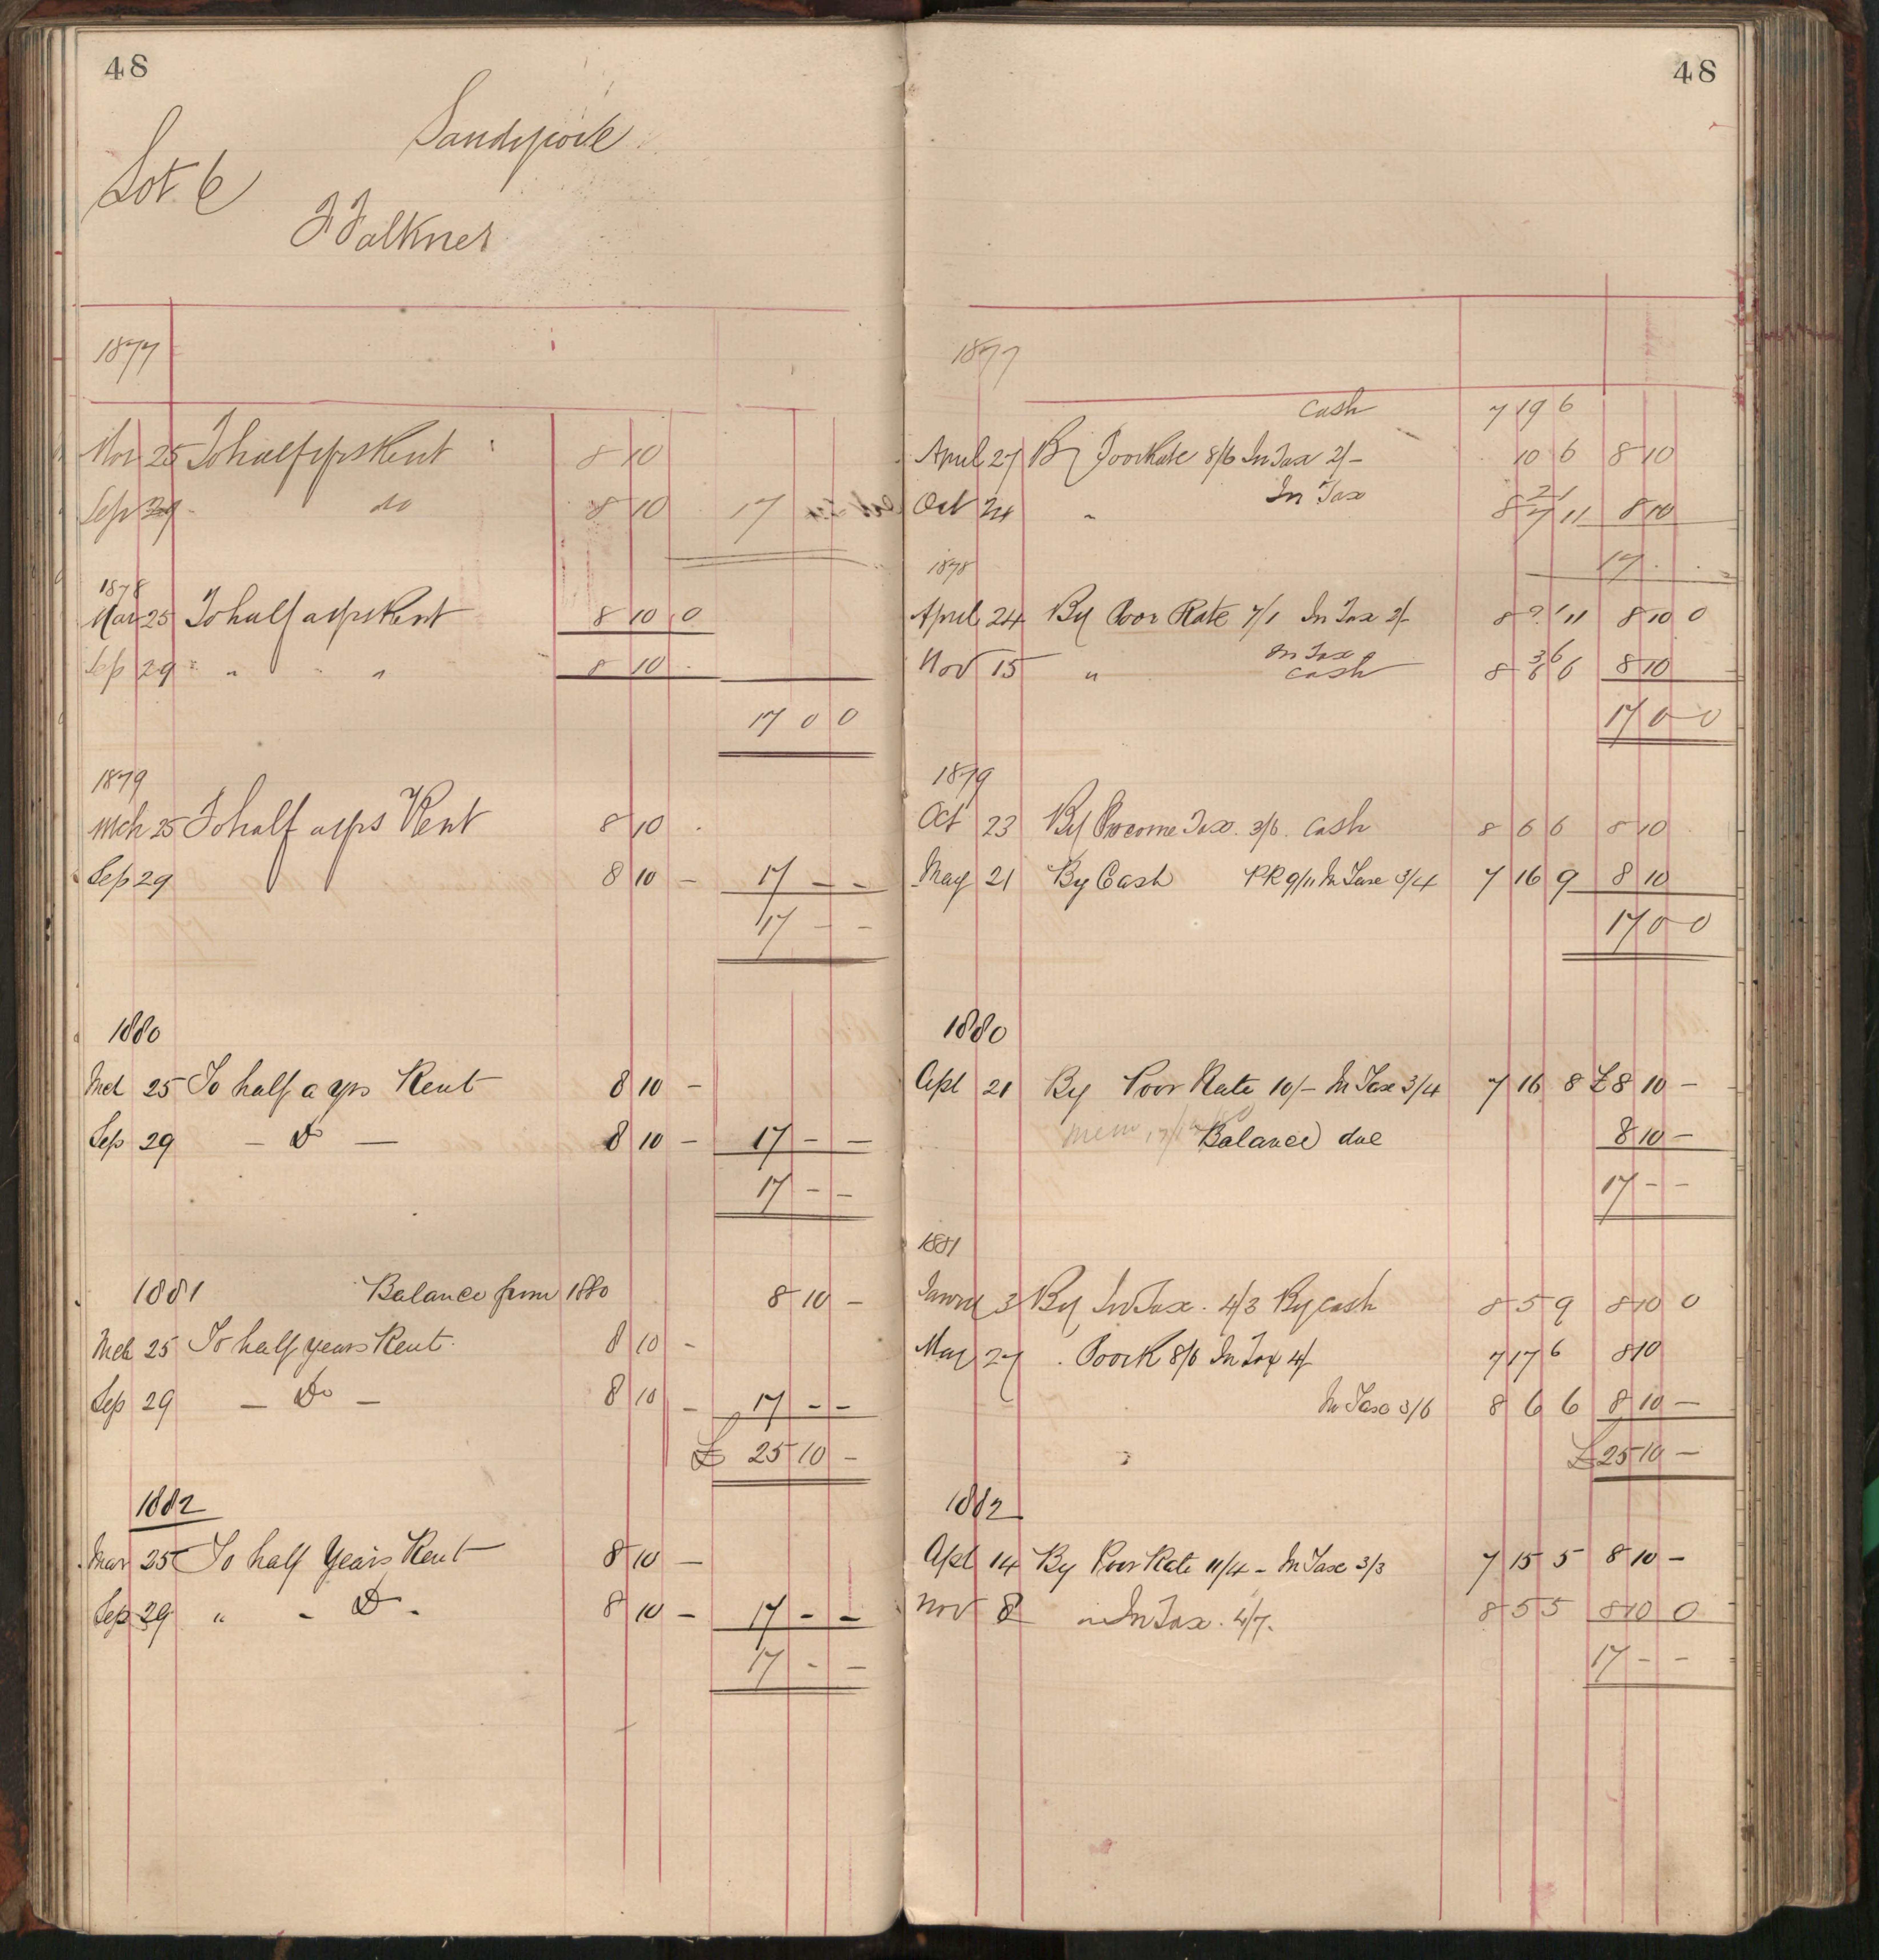 48
Sandypool
Lot 6
F Falkner
1877
Mar 25 To half a yrs Rent 8 10
Sep 29 do 8 10 17
1878
Mar 25 To half a yrs Rent 8 10 0
Sep 29 " " 8 10
17 0 0
1879
Mch 25 To half a yrs Rent 8 10
Sep 29 8 10 – 17 – –
17 – –
1880
Mch 25 To half a yrs Rent 8 10 –
Sep 29 – Do – 8 10 – 17 – –
17 – –
1881 Balance from 1880 8 10 –
Mch 25 To half years Rent 8 10 –
Sep 29 – Do – 8 10 – 17 – –
£ 25 10 –
1882
Mar 25 To half Years Rent 8 10 –
Sep 29 " – Do – 8 10 – 17 – –
17 – –
48
1877
Cash 7 19 6
April 27 By Poor Rate 8/6 In Tax 2/– 10 6 8 10
Oct 24 " In Tax 2 1
8 7 11 8 10
17
1878
April 24 By Poor Rate 7/1 In Tax 2/– 8 11 8 10 0
Nov 15 " In Tax 3 6
Cash 8 6 6 8 10
17 0 0
1879
Oct 23 By Income Tax 3/6 Cash 8 6 6 8 10
May 21 By Cash PR 9/11 In Taxe 3/4 7 16 9 8 10
17 0 0
1880
Apl 21 By Poor Rate 10/– In Taxe 3/4 7 16 8 £8 10 –
Mem Balance due 8 10 –
17 – –
1881
Janry 3 By In Tax 4/3 By cash 8 5 9 8 10 0
May 27 Poor R 8/6 In Tax 4/ 7 17 6 8 10
In Taxe 3/6 8 6 6 8 10 –
£25 10 –
1882
Apl 14 By Poor Rate 11/4 – In Taxe 3/3 7 15 5 8 10 –
Nov 8 " In Tax 4/7 8 5 5 8 10 0
17 – –